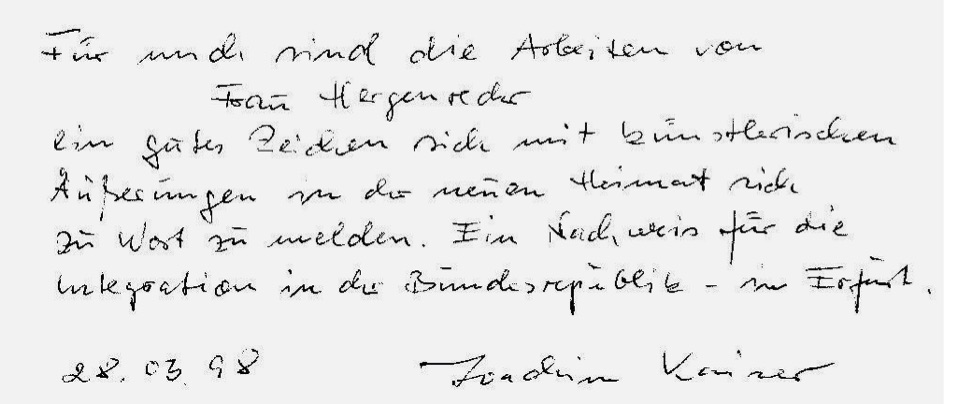 Für mich sind die Arbeiten von
Frau Hergenreder
ein gutes Zeichen sich mit künstlerischen
Äußerungen in der neuen Heimat sich
zu Wort zu melden. Ein Nachweis für die
Integration in der Bundesrepublik - in Erfurt.
28.03.98 Joachim Kaiser